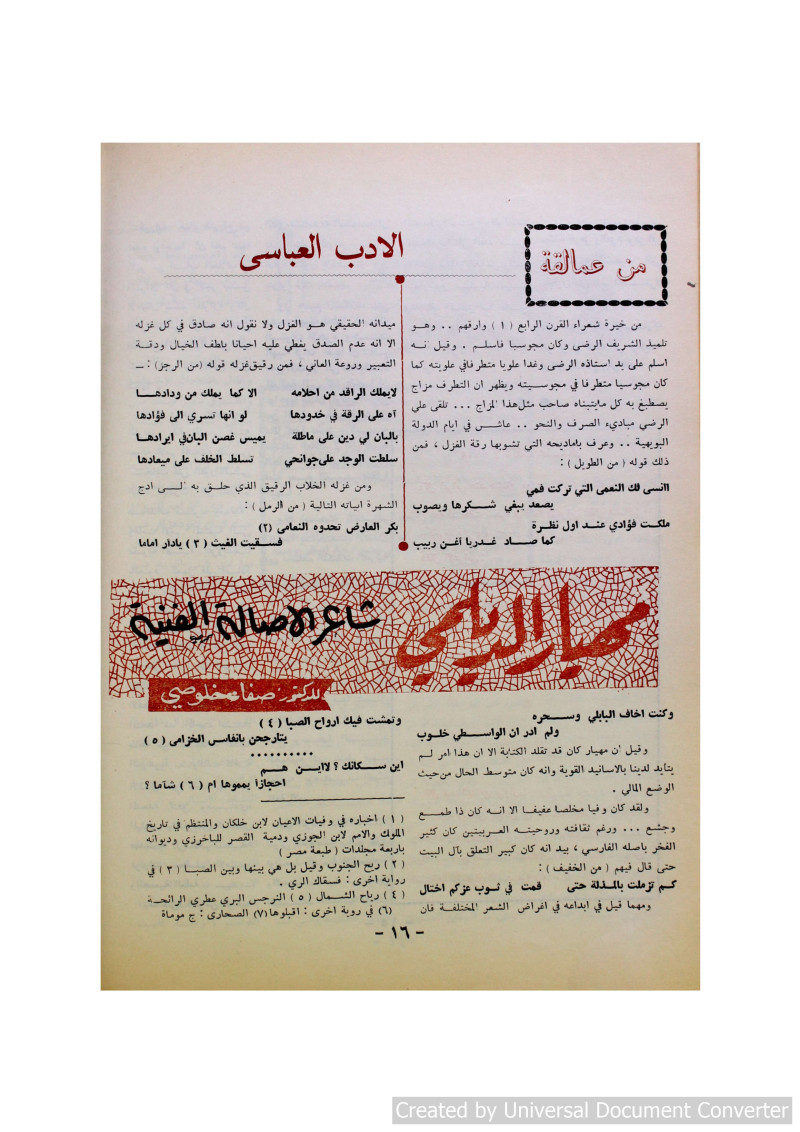 من عمالقة
الادب العباسى
من خيرة شعراء القرن الرابع ( ١ ) وارقهم . . وهـو
تلميذ الشريف الرضى وكان مجوسيا فاسلم . وقيل انه
اسلم على يد استاذه الرضى وغدا علويا متطرفا في علويته كما
كان مجوسيا متطرفا في مجوسيته ويظهر ان التطرف مزاج
يصطبغ به كل مايتبناه صاحب مثل هذا المزاج ... تلقى على
الرضي مباديء الصرف والنحو .. عاش في ايام الدولة
البويهية .. وعرف باماديحه التي تشوبها رقة الغزل ، فمن
ذلك قوله ( من الطويل ) :
اانسى لك النعمى التي تركت فمي
يصعد يبغي شكرها ويصوب
ملكت فؤادي عند اول نظرة
كما صاد غدريا اغن ربيب
ميدانه الحقيقي هو الغزل ولا نقول انه صادق في كل غزله
الا انه عدم الصدق يغطي عليه احيانا بلطف الخيال ودقة
التعبير وروعة العاني ، فمن رقيق غزله قوله (من الرجز) : ـ
لايملك الراقد من احلامه    الا كما يملك من ودادها
آه على الرقة في خدودها    لو انها تسري الى فؤادها
بالبان لي دين على ماطلة    يميس غصن البان في ايرادها
سلطت الوجد على جوانحي    تسلط الخلف على ميعادها
ومن غزله الخلاب الرقيق الذي حلق به الى ادج
الشهرة ابياته التالية ( من الرمل ) :
بكر العارض تحدوه النعامى (٢)
فسقيت الغيث ( ٣ ) يادار اماما
مهيار الديلمي
شاعر الاصالة الفنية
للدكتور صفاء خلوصي
وكنت اخاف البابلي وسحره
ولم ادر ان الواسطي خلوب
وقيل ان مهيار كان قد تقلد الكتابة الا ان هذا امر لم
يتأيد لدينا بالاسانيد القوية وانه كان متوسط الحال من حيث
الوضع المالي .
ولقد كان وفيا مخلصا عفيفا الا انه كان ذا طمع
وجشع ... ورغم ثقافته وروحيته العربيتين كان كثير
الفخر باصله الفارسي ، بيد انه كان كبير التعلق بآل البيت
حتى قال فيهم ( من الخفيف ) :
كم تزملت بالمذلة حتى    قمت في ثوب عزكم اختال
ومهما قيل في ابداعه في اغراض الشعر المختلفة فان
وتمشت فيك ارواح الصبا ( ٤ )
يتارجحن بانفاس الخزامى ( ٥ )
• • • • • • • • • •
اين سكانك ؟ لااين هم
احجازا يمموها ام ( ٦ ) شآما ؟
( ١ ) اخباره في وفيات الاعيان لابن خلكان والمنتظم في تاريخ
الملوك والامم لابن الجوزي ودمية القصر للباخرزي وديوانه
باربعة مجلدات ( طبعة مصر )
( ٢ ) ريح الجنوب وقيل بل هي بينها وبين الصبا ( ٣ ) في
رواية اخرى : فسقاك الري .
( ٤ ) رياح الشمال ( ٥ ) النرجس البري عطري الرائحة
(٦) في روية اخرى : اقبلوها (٧) الصحارى : ج موماة
- ١٦ -
Created by Universal Document Converter